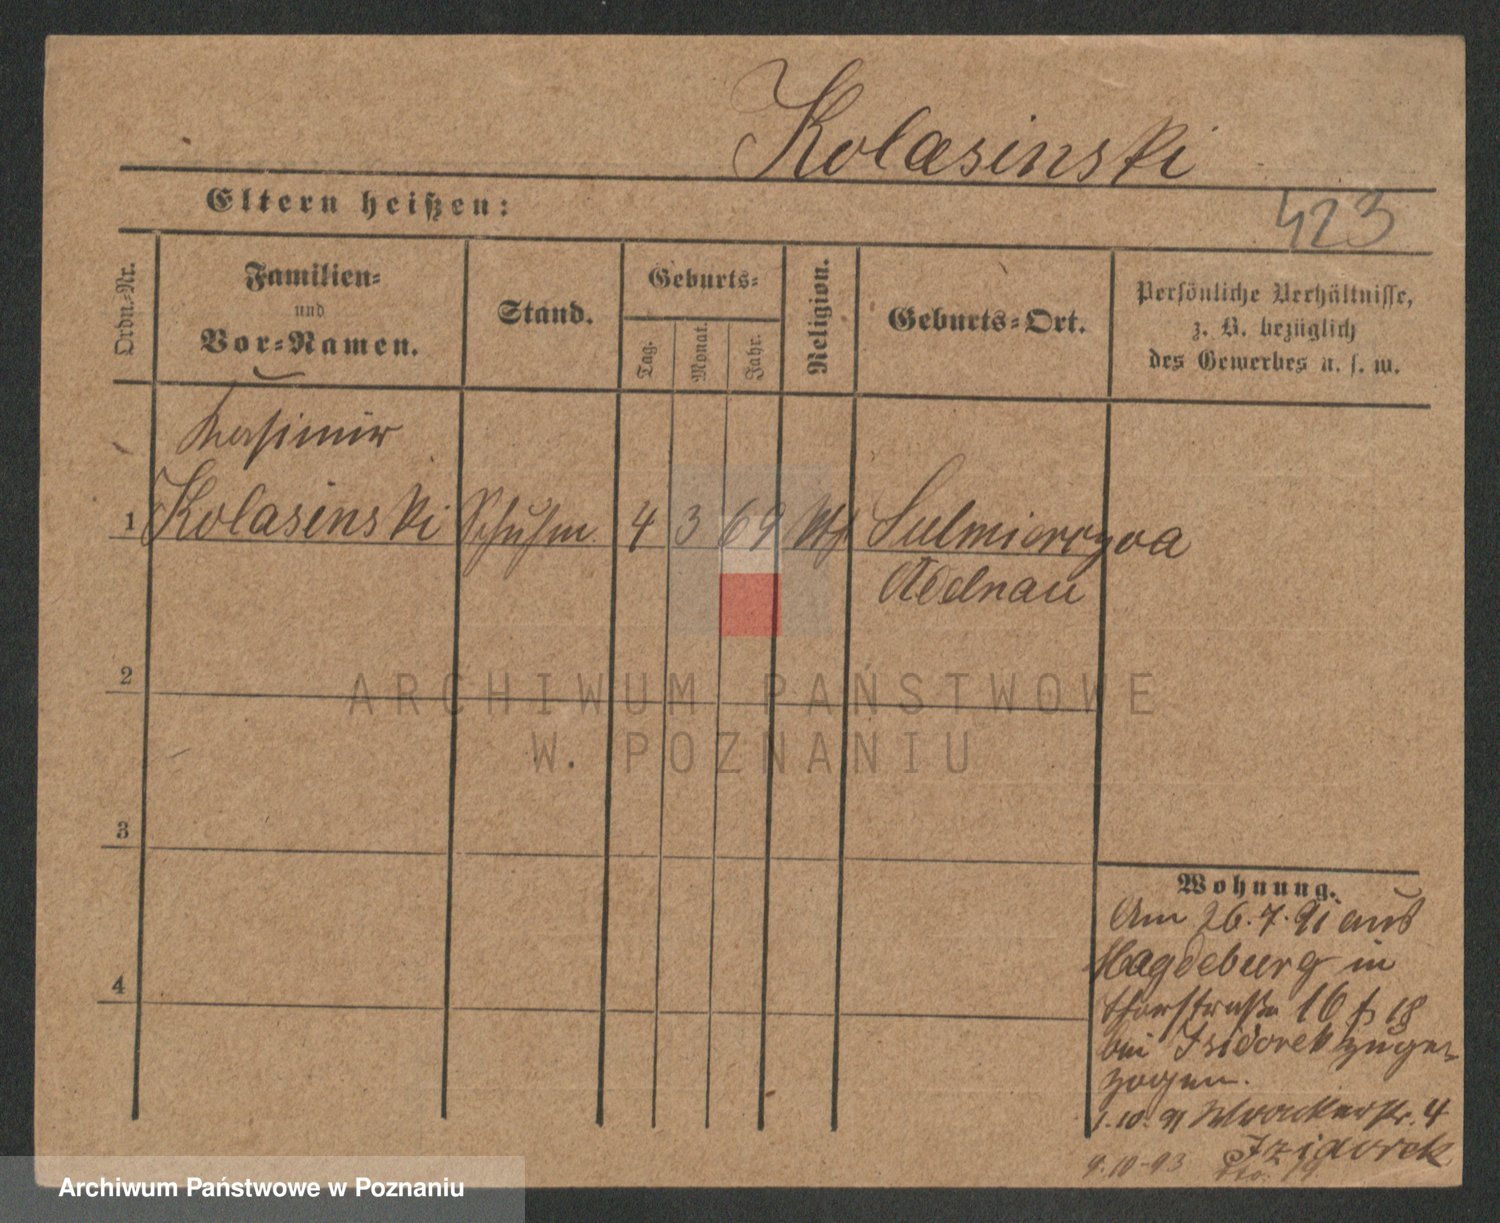 Kolasinski
Eltern heißen:
423
Ordn.-Nr.
Familien-
und
Vor-Namen.
Stand.
Geburts-
Tag.
Monat.
Jahr.
Religion.
Geburts-Ort.
Persönliche Verhältnisse,
z. B. bezüglich
des Gewerbes u. s. w.
Kasimir
1 Kolasinski Schuhm. 4 3 69 kth Sulmierzya
Adelnau
2
3
4
Wohnung.
Am 26.7.91 aus
Magdeburg in
Thorstraße 16 18
bei Isidorek zuge-
zogen.
1.10.91 4
Izidorek
9.10-93
ARCHIWUM PAŃSTWOWE
W. POZNANIU
Archiwum Państwowe w Poznaniu